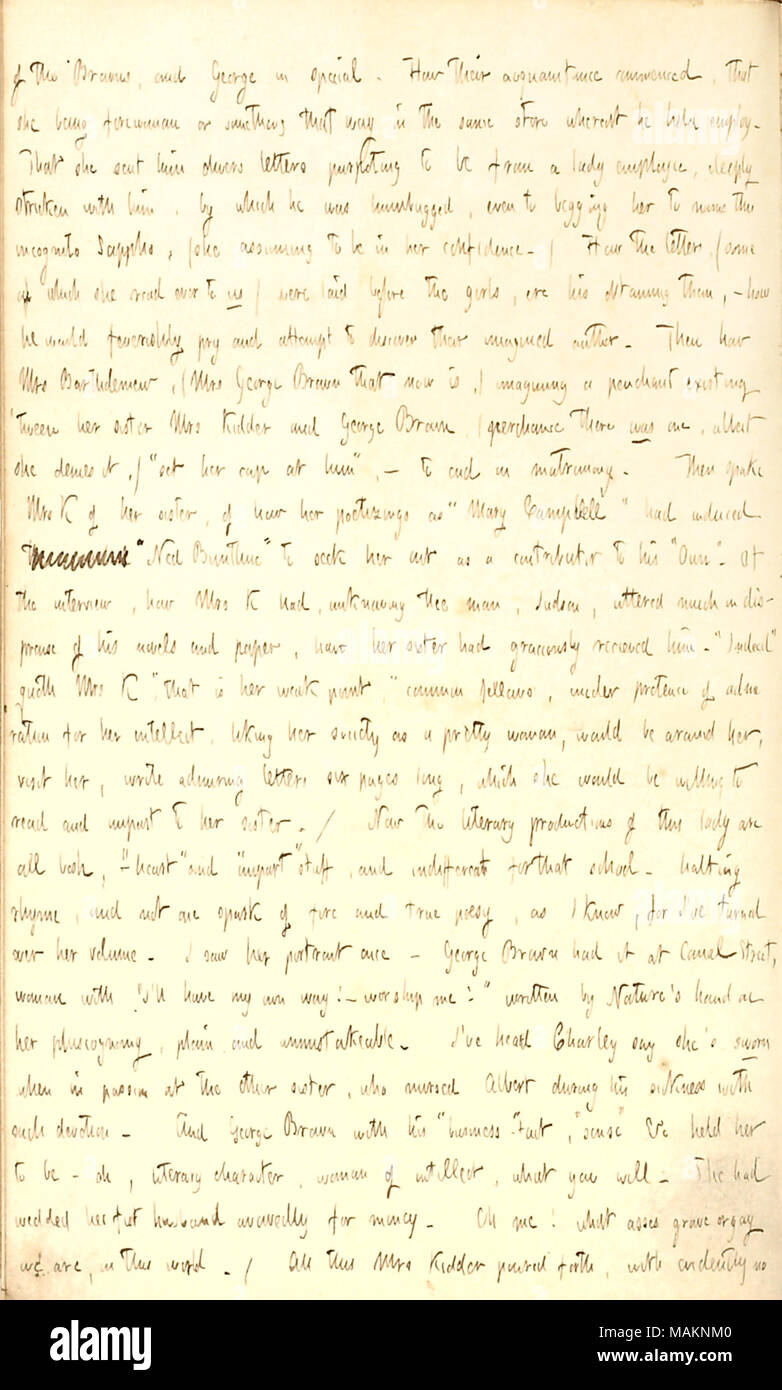 of the Browns, and George in special. How their acquaintance commenced, that
she being forewoman or something that way in the same store whereat he held employ.
That she sent him divers letters purporting to be from a lady employee, deeply
stricken with him, by which he was humbugged, even to begging her to name the
incognito Sappho, (she assuming to be in her confidence.) How the letters, (some
of which she read over to us) were laid before the girls, ere his obtaining them, — how
he would feverishly pry and attempt to discover their imagined author. Then how
Mrs Bartholemew, (Mrs George Brown that now is,) imagining a penchant existing
'tween her sister Mrs Kidder and George Brown, (perchance there was one, albeit
she denies it,) "set her cap at him", — to end in matrimony. Then spake
Mrs K of her sister, of how her poetizings as "Mary Campbell" had induced
"Ned Buntline" to seek her out as a contributor to his "Own". Of
the interview, how Mrs K had, unknowing the man, Judson, uttered much in dis-
praise of his novels and paper, how her sister had graciously recieved him. "Indeed"
quoth Mrs K "that is her weak point," common fellows, under pretence of admi
ration for her intellect, liking her society as a pretty woman, would be around her,
visit her, write admiring letters six pages long, which she would be willing to
read and impart to her sister. / Now the literary productions of this lady are
all bosh, "heart" and "impart" stuff, and indifferent for that school. halting
rhyme, and not one spark of fire and true poesy, as I know, for I've turned
over her volume. I saw her portrait once — George Brown had it at Canal Street,
woman with "I'll have my own way! — worship me!" written by Nature's hand on
her phisiognomy, plain and unmistakeable. I've heard Charley say she's sworn
when in passion at the other sister, who nursed Albert during his sickness with
such devotion. And George Brown with his "business tact", "sense" &c held her
to be — oh, literary character, woman of intellect, what you will. She had
wedded her first husband avowedly for money. Oh me! what asses grave or gay
we are, in this world. / All this Mrs Kidder poured forth, with evidently no
alamy
Image ID: MAKNM0
www.alamy.com